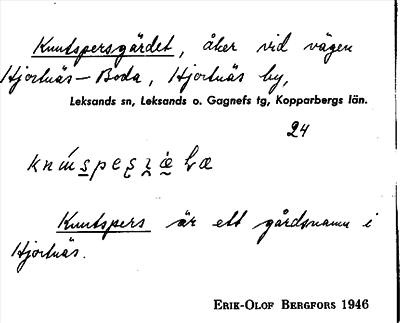 Knutspersgärdet, åker vid vägen
Hjortnäs – Boda, Hjortnäs by,
Leksands sn, Leksands o. Gagnefs tg, Kopparbergs län.
24
Knutspers är ett gårdsnamn i
Hjortnäs.
ERIK-OLOF BERGFORS 1946